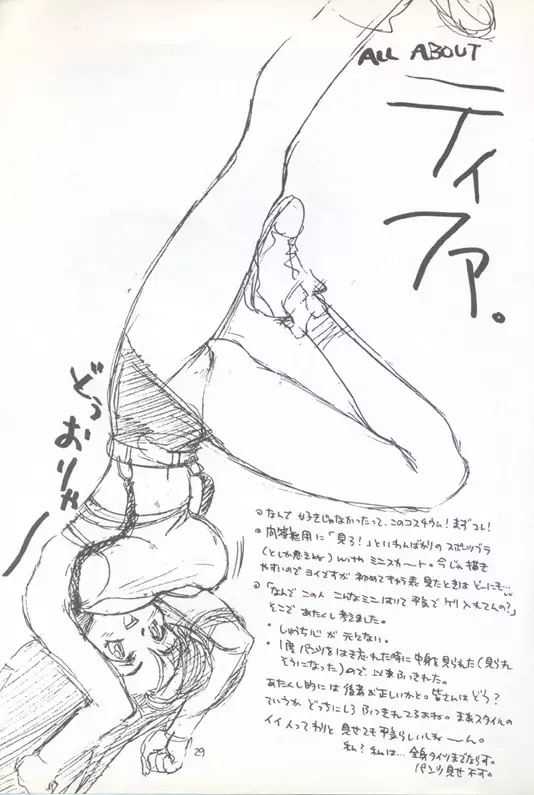 ALL ABOUT
ティファ。
どぅおりゃー
◎なんで好きじゃなかったって、このコスチウム!まずコレ!
「見ろ!」といわんばかりのスポーツブラ
(としか思えねぇ)withミニスカート。今じゃ描き
やすいのでヨイですが初めてキャラ表見たときはどーにも…
◎「なんでこの人こんなミニはいて平気でケリ入れてんの?」
とここであたくし考えました。
・しゅうち心が元々ない。
・1度パンツをはき忘れた時に中身を見られた(見られ
そうになった)ので以来ふっきれた。
あたくし的には後者が正しいかと。皆さんはどう?
ていうかどっちにしろふっきれてるよね。まあスタイルの
イイ人ってわりと見せても平気らしいしねーん。
私?私は…全身タイツまでならす。
パンツ見せ不す。
29